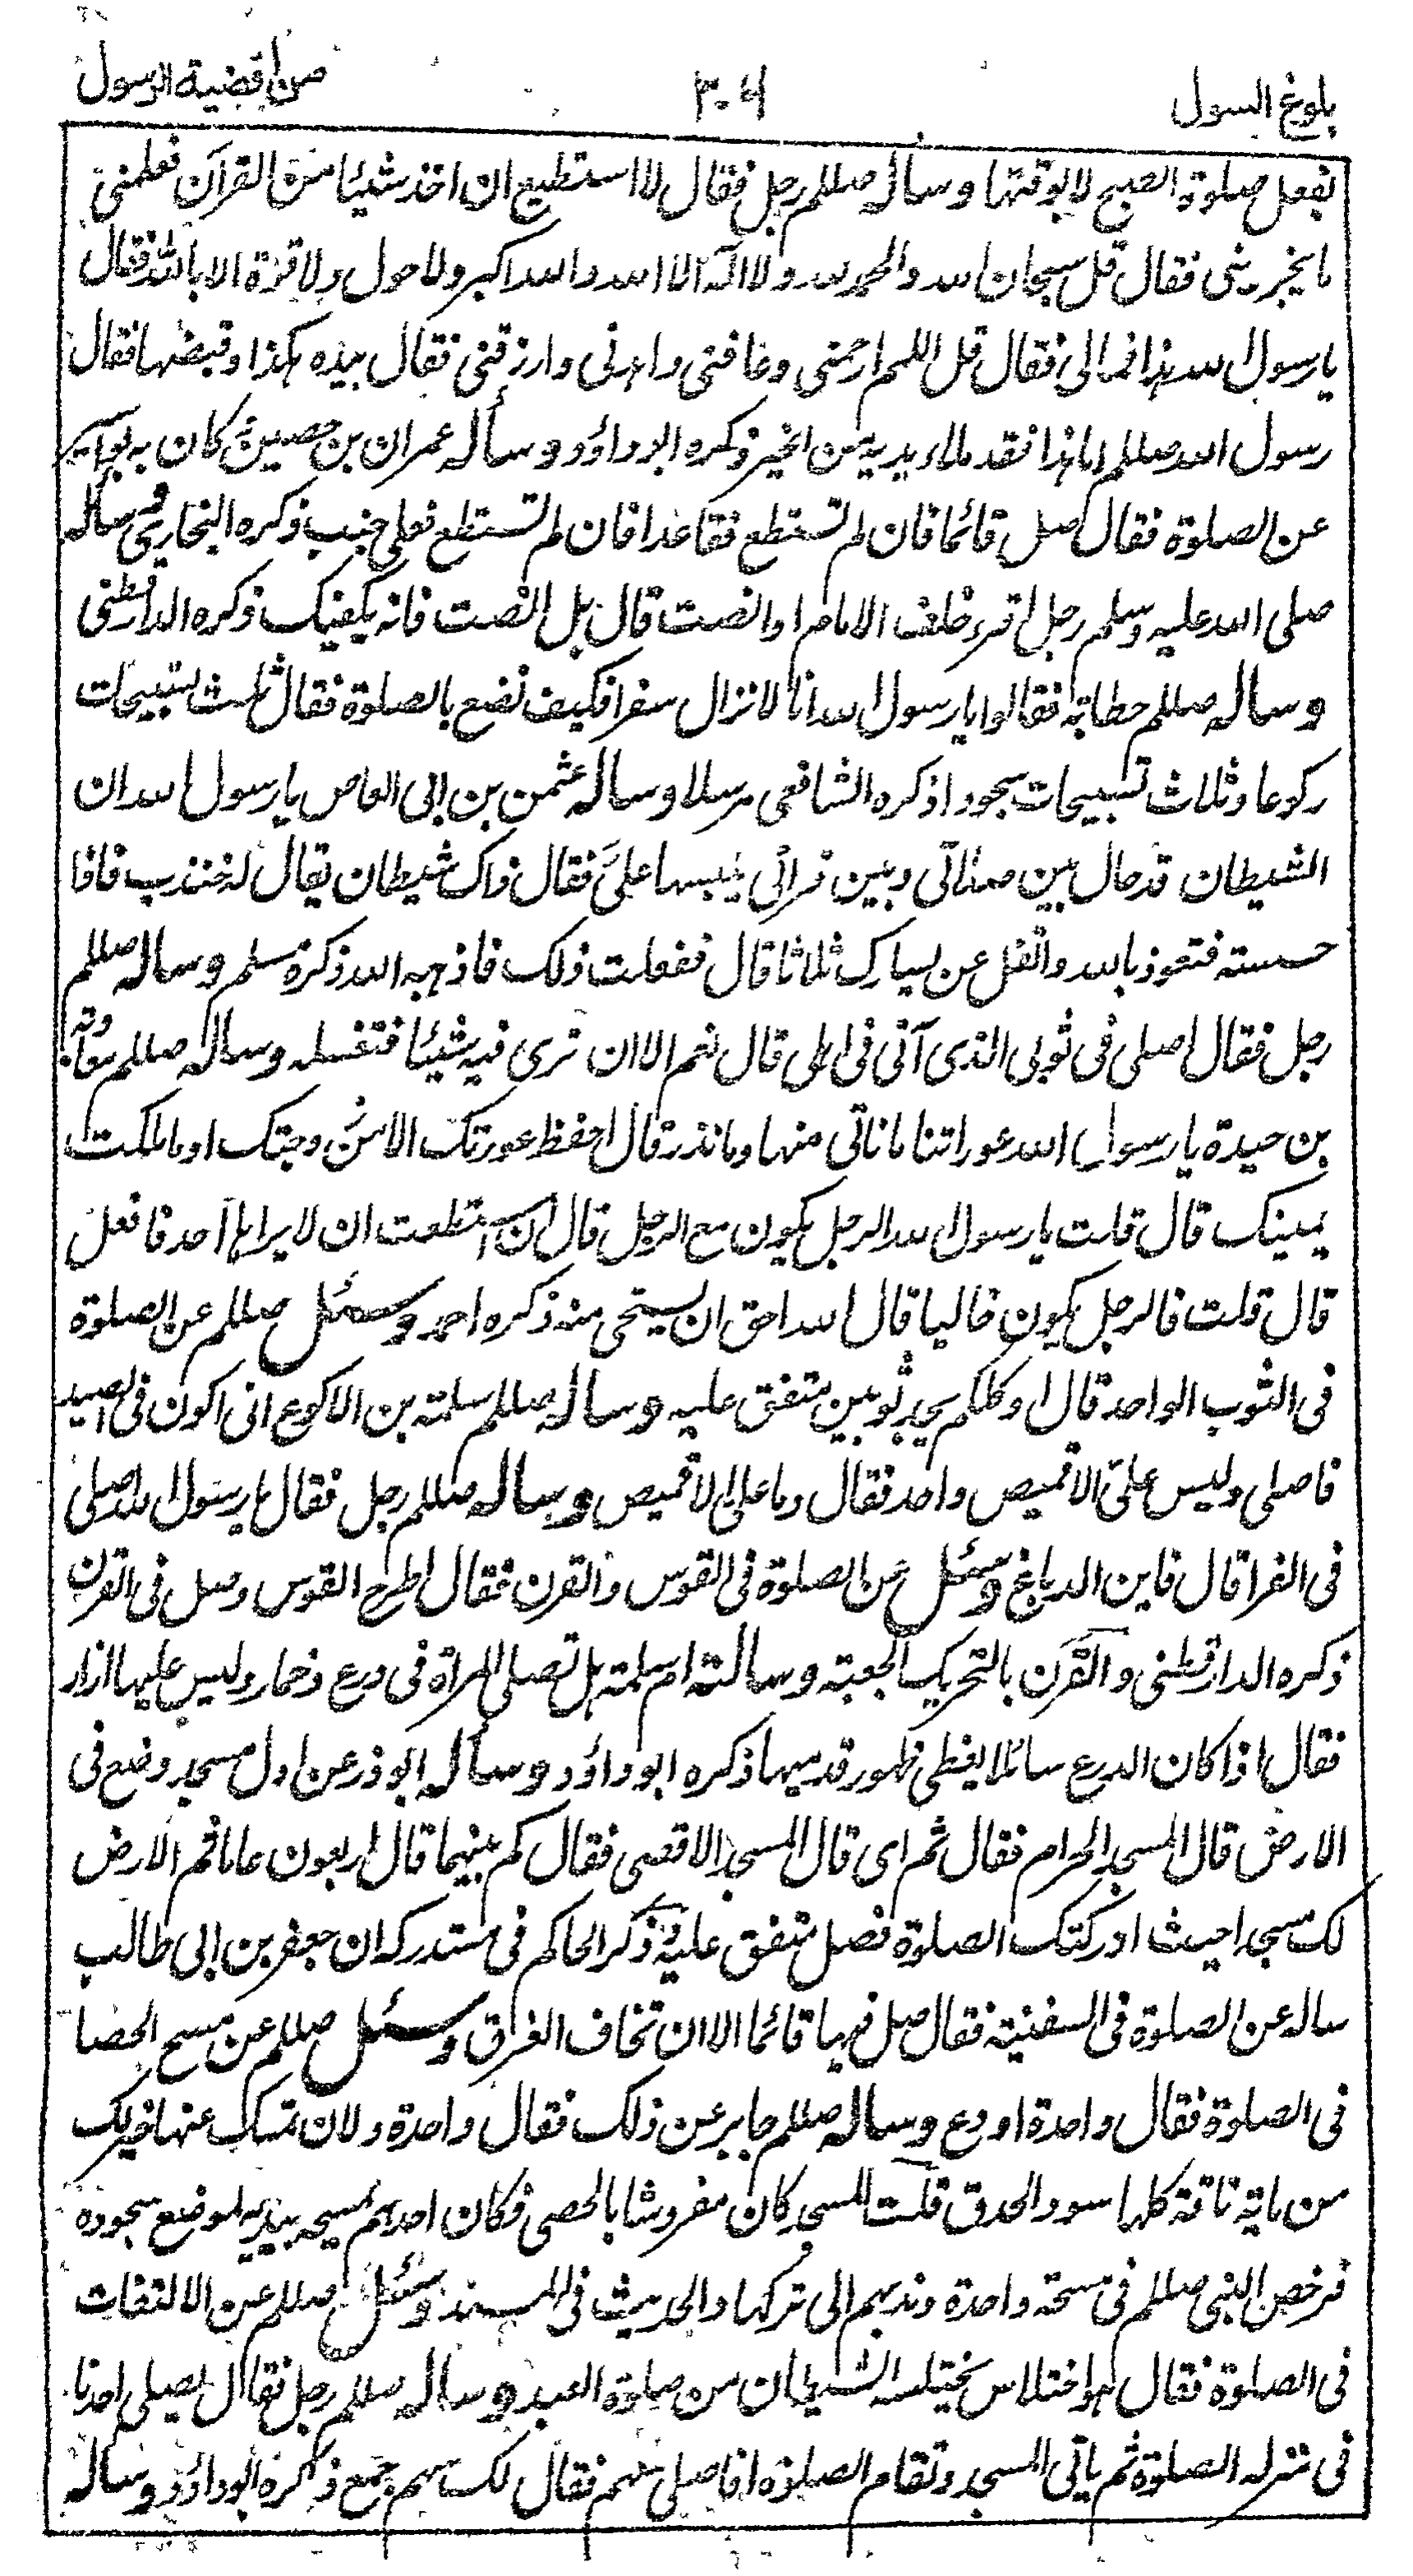 بلوغ السول ٣٠٤ من اقضية الرسول
بفعل صلوة الصبح لا بوقتها وسأله صللم رجل فقال لا استطيع ان اخذ شيئا من القرآن فعلمنی
ما يجزينی فقال قل سبحان الله والحمد لله ولا اله الا الله والله اكبر ولا حول ولا قوة الا بالله فقال
يا رسول الله هذا فمالی فقال قل اللهم ارحمنی وعافنی واهدنی وارزقنی فقال بيده هكذا وقبضها فقال
رسول الله صللم اما هذا فقد ملاء يديه من الخير ذكره ابو داؤد وسأله عمران بن حصين كان به بواسير
عن الصلوة فقال صل قائما فان لم تستطع فقاعدا فان لم تستطع فعلی جنب ذكره البخاری وسأله
صلی الله عليه وسلم رجل اقرء خلف الامام او انصت قال بل انصت فانه يكفيك ذكره الدارقطنی
وساله صللم حطابة فقالوا يا رسول الله انا لا نزال سفرا فكيف نصنع بالصلوة فقال ثلث تسبيحات
ركوعا وثلاث تسبيحات سجودا ذكره الشافعی مرسلا وساله عثمن بن ابی العاص يا رسول الله ان
الشيطان قد حال بين صلاتی وبين قرأتی يلبسها علیّ فقال ذاك شيطان يقال له خنذب فاذا
حسسته فتعوذ بالله واتفل عن يسارك ثلاثا قال ففعلت ذلك فاذهبه الله ذكره مسلم وساله صللم
رجل فقال اصلی فی ثوبی الذی آتی فی اهلی قال نعم الا ان تری فيه شيئا فتغسله وساله صللم معاوية
بن حيدة يا رسول الله عوراتنا ما ناتی منها وما نذر قال احفظ عورتك الا من زوجتك او ما ملكت
يمينك قال قلت يا رسول الله الرجل يكون مع الرجل قال ان استطعت ان لا يراها احد فافعل
قال قلت فالرجل يكون خاليا قال الله احق ان يستحی منه ذكره احمد وسئل صللم عن الصلوة
فی الثوب الواحد قال او كلكم يجد ثوبين متفق عليه وساله صللم سلمة بن الاكوع انی اكون فی الصيد
فاصلی وليس علیّ الا قميص واحد فقال وما علی الا قميص وساله صللم رجل فقال يا رسول الله اصلی
فی الفرا قال فاين الدباغ وسئل عن الصلوة فی القوس والقرن فقال اطرح القوس وصل فی القرن
ذكره الدارقطنی والقرن بالتحريك الجعبة وسالته ام سلمة هل تصلی المرأة فی درع وخمار وليس عليها ازار
فقال اذا كان الدرع سائلا يغطی ظهور قدميها ذكره ابو داؤد وسأله ابو ذر عن اول مسجد وضع فی
الارض قال المسجد الحرام فقال ثم ای قال المسجد الاقصی فقال كم بينهما قال اربعون عاما ثم الارض
لك مسجد احيث ادركتك الصلوة فصل متفق عليه وذكر الحاكم فی مستدركه ان جعفر بن ابی طالب
ساله عن الصلوة فی السفينة فقال صل فيها قائما الا ان تخاف الغرق وسئل صللم عن مسح الحصا
فی الصلوة فقال واحدة او دع وساله صللم جابر عن ذلك فقال واحدة ولان تمسك عنها خير لك
من ماية ناقة كلها سود الحدق قلت المسجد كان مفروشا بالحصی فكان احدهم يمسحه بيديه لموضع سجوده
فرخص النبی صللم فی مسحة واحدة وندبهم الی تركها والحديث فی المسند وسئل صللم عن الالتفات
فی الصلوة فقال هو اختلاس يختلسه الشيطان من صلوة العبد وساله صللم رجل فقال يصلی احدنا
فی منزله الصلوة ثم ياتی المسجد وتقام الصلوة افاصلی معهم فقال لك سهم جمع ذكره ابو داؤد وساله